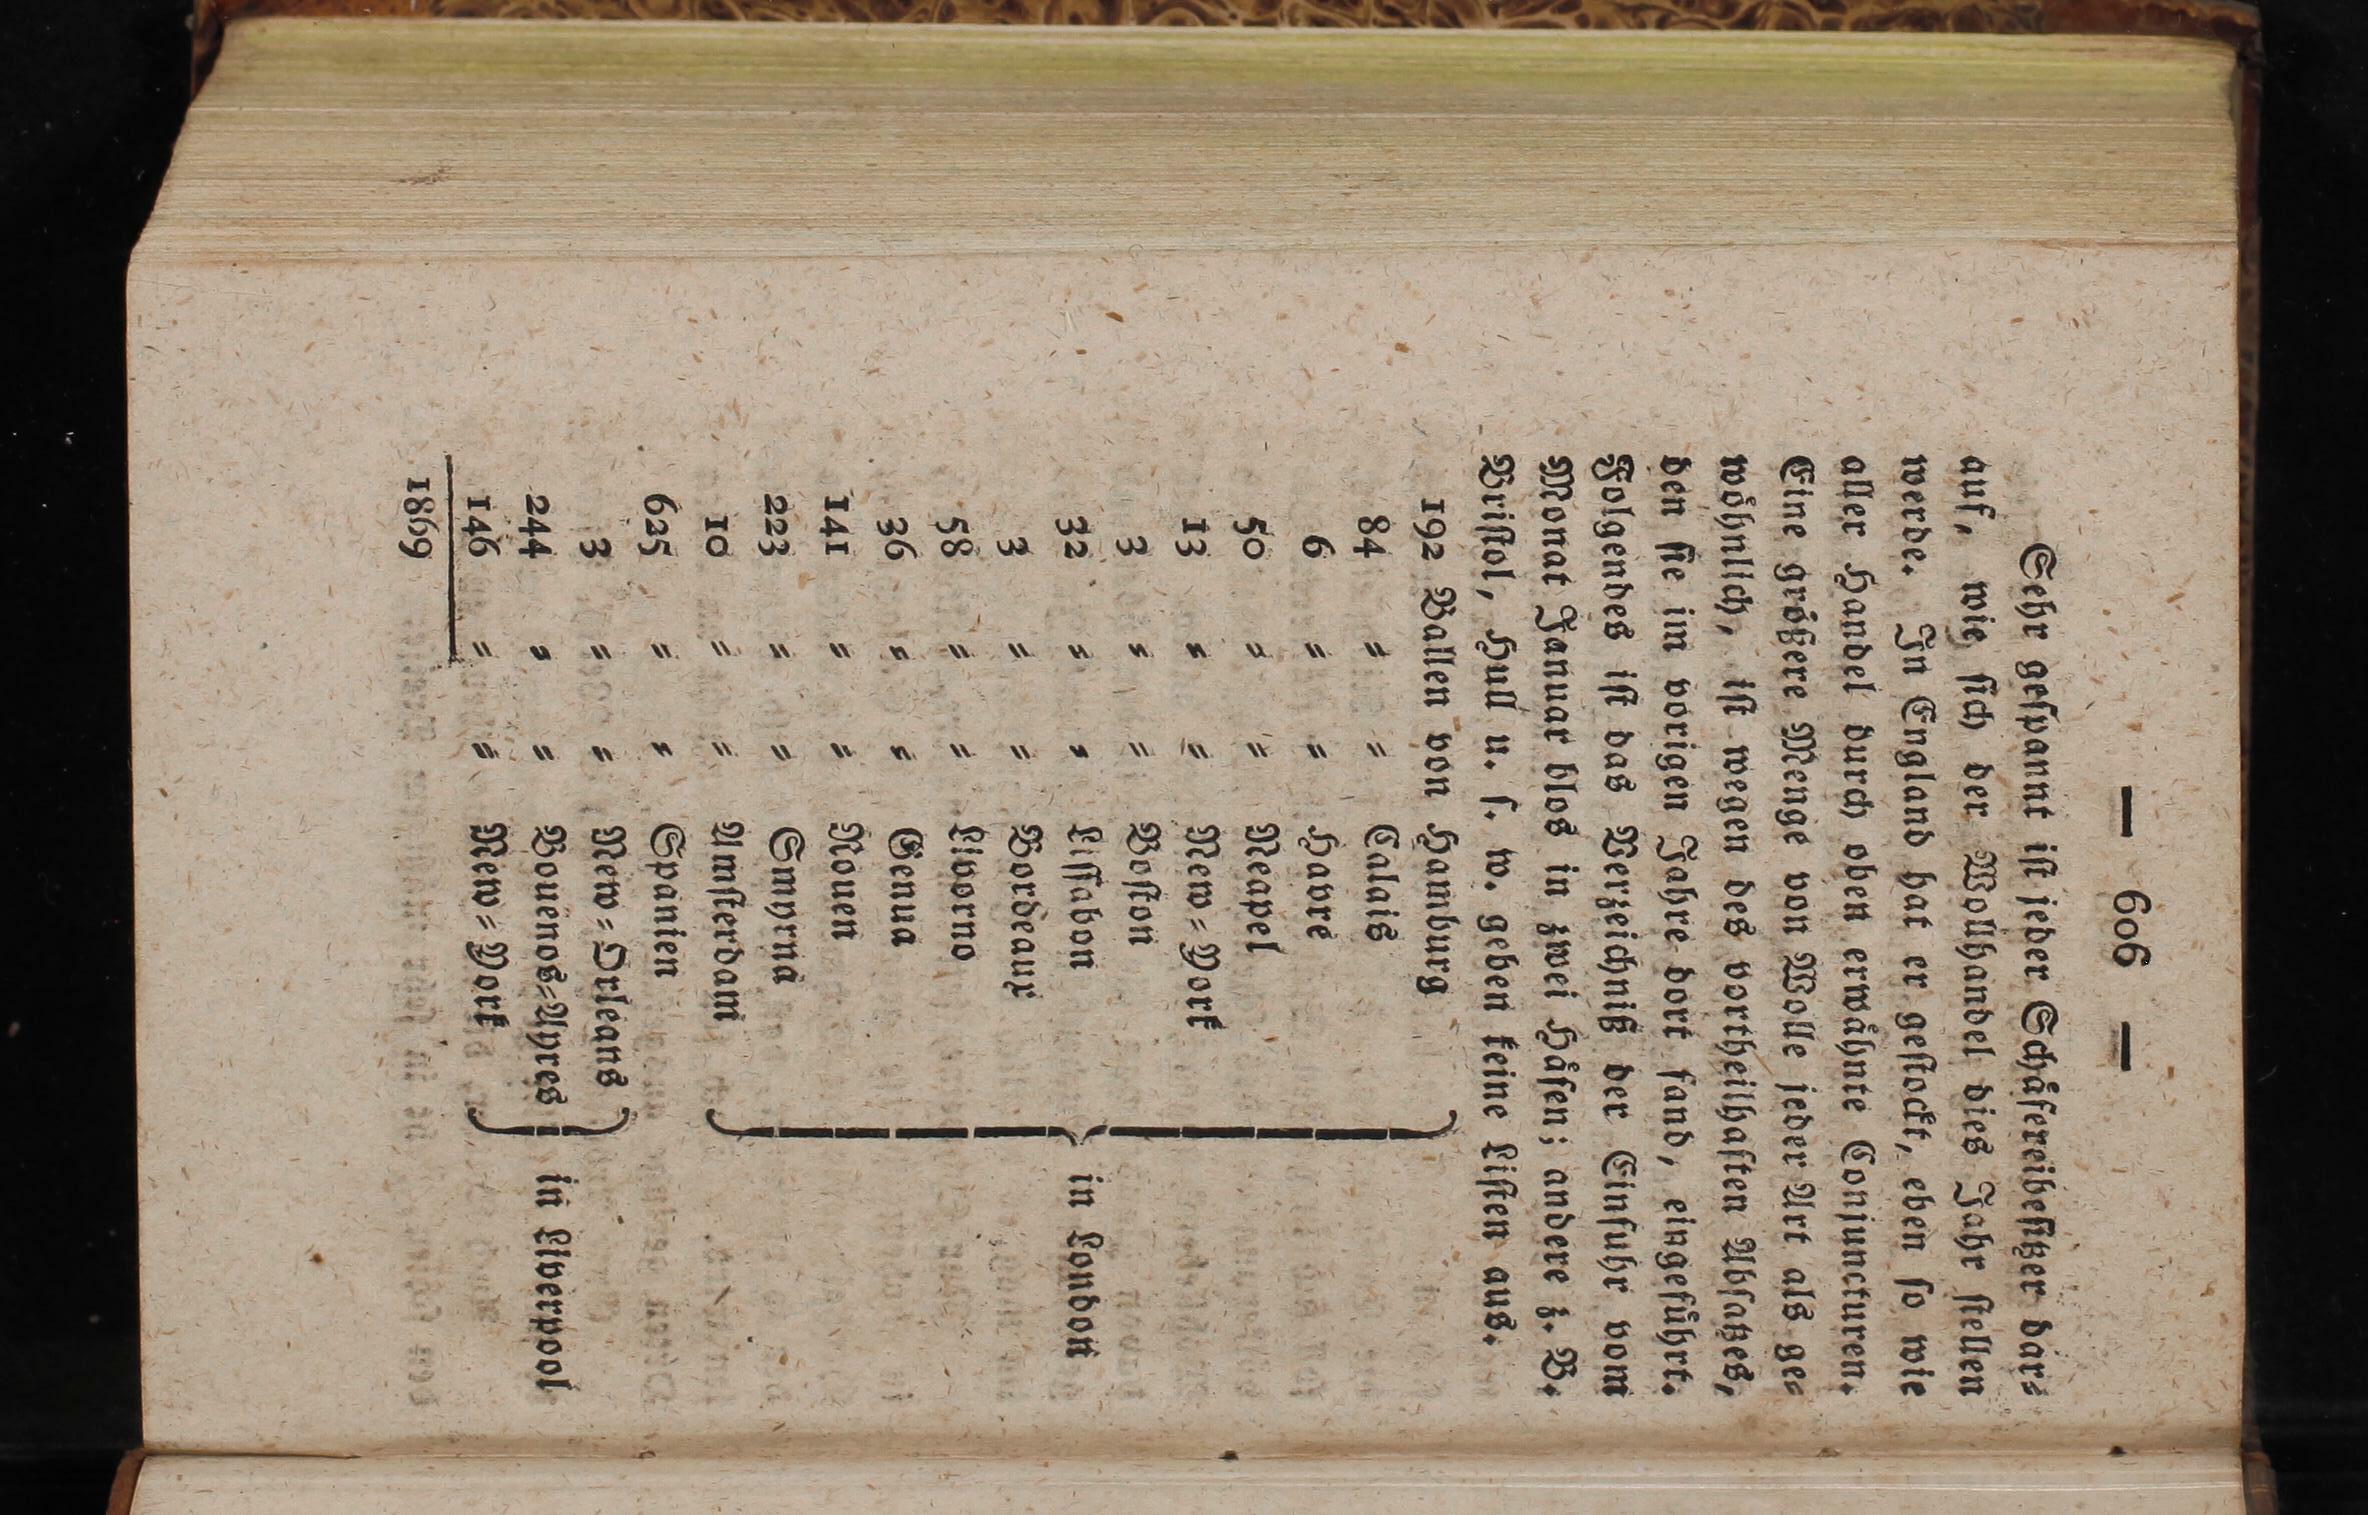 — 606 —
Sehr gespannt ist jeder Schäfereibesitzer dar=
auf, wie sich der Wollhandel dies Jahr stellen
werde. In England hat er gestockt, eben so wie
aller Handel durch oben erwähnte Conjuncturen.
Eine größere Menge von Wolle jeder Art als ge=
wöhnlich, ist wegen des vortheilhaften Absatzes,
den sie im vorigen Jahre dort fand, eingeführt.
Folgendes ist das Verzeichniß der Einfuhr vom
Monat Januar blos in zwei Häfen; andere z. B.
Bristol, Hull u. s. w. geben keine Listen aus.
192 Ballen von Hamburg
84 " " Calais
6 " " Havre
50 " " Neapel
13 " " New=York
3 " " Boston
32 " " Lissabon
3 " " Bordeaux
58 " " Livorno
36 " " Genua
141 " " Rouen
223 " " Smyrna
10 " " Amsterdam
in London
625 " " Spanien
3 " " New=Orleans
244 " " Bouenos=Ayres
146 " " New=York
in Liverpool
1869